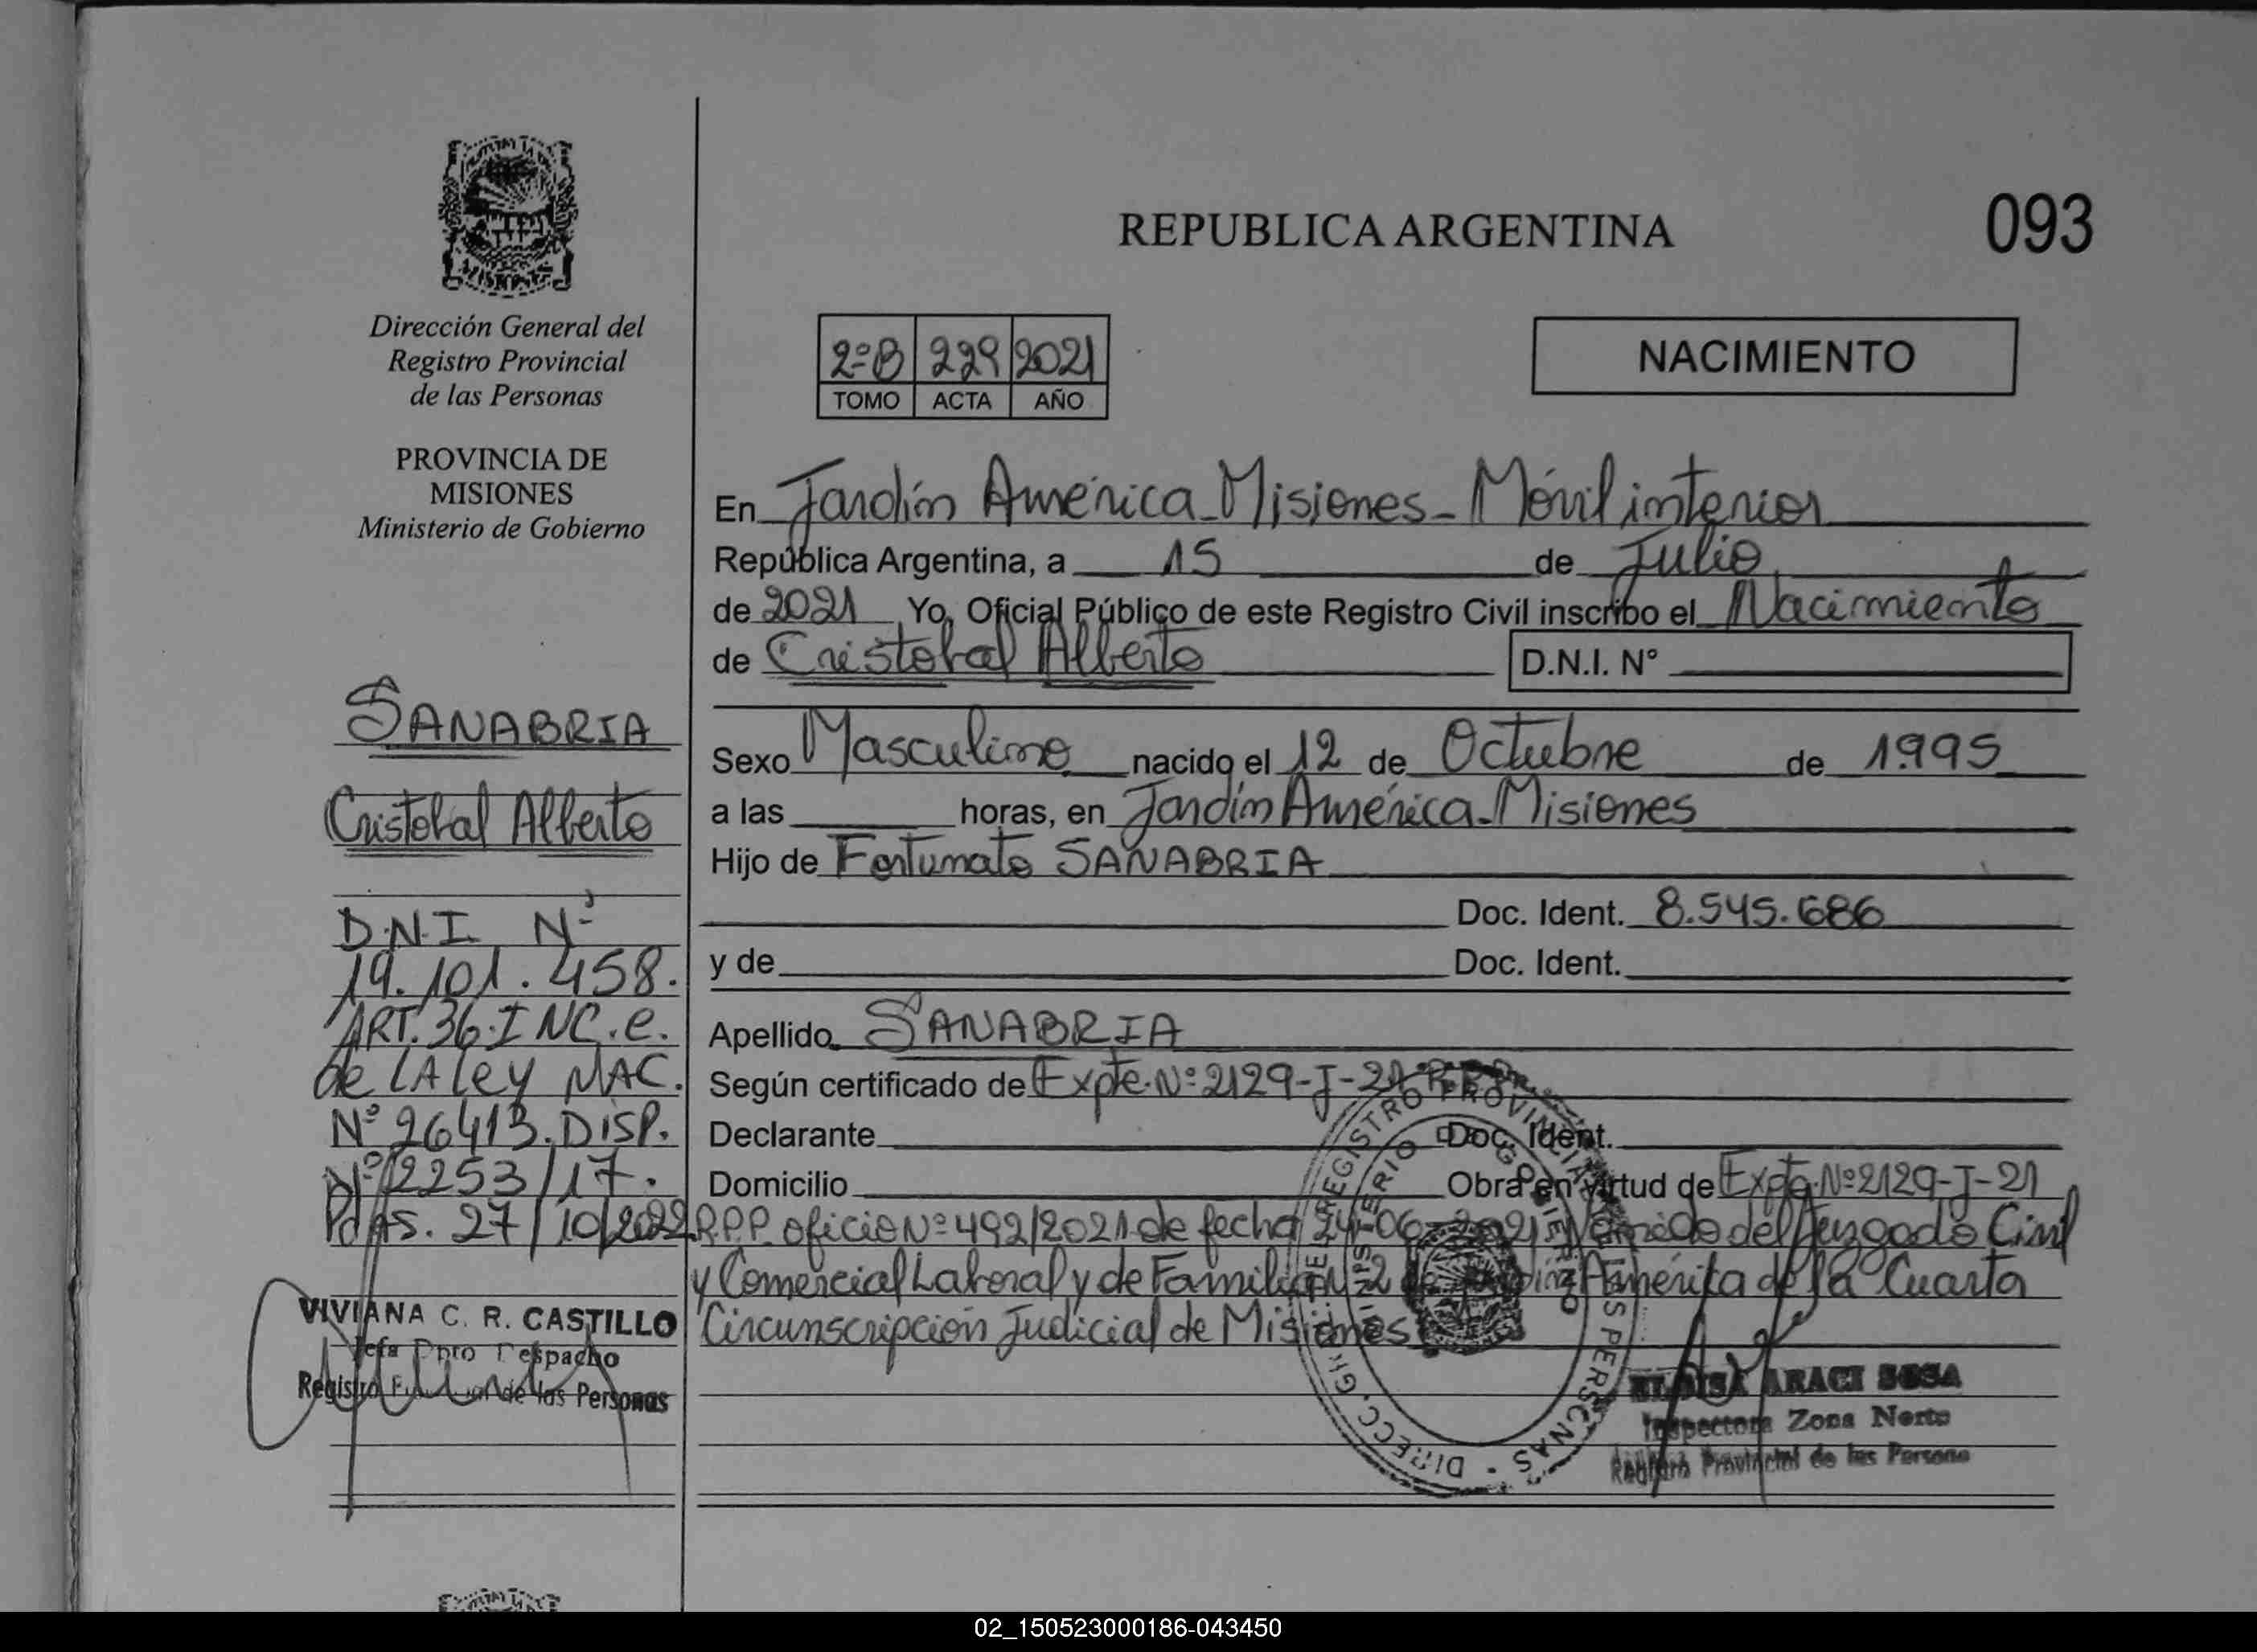 Dirección General del
Registro Provincial
de las Personas
PROVINCIA DE
MISIONES
Ministerio de Gobierno
SANABRIA
Cristobal Alberto
D.N.I Nº
19.101.458.
ART.36.INC.e.
de LA Ley NAC.
Nº 26413.DISP.
Nº 2253/17.
Pdas. 27/10/2022
VIVIANA C. R. CASTILLO
Jefa Dpto Despacho
Registro de las Personas
REPUBLICA ARGENTINA
093
2º B 229 2021
TOMO ACTA AÑO
NACIMIENTO
En Jardín América - Misiones - Móvil interior
República Argentina, a 15 de Julio
de 2021 Yo, Oficial Público de este Registro Civil inscribo el Nacimiento
de Cristobal Alberto D.N.I. Nº
Sexo Masculino nacido el 12 de Octubre de 1995
a las horas, en Jardín América - Misiones
Hijo de Fortunato SANABRIA
Doc. Ident. 8.545.686
y de Doc. Ident.
Apellido SANABRIA
Según certificado de Expte. Nº 2129-J-21 R.P.P.
Declarante Doc. Ident.
Domicilio Obra en virtud de Expte. Nº 2129-J-21
R.P.P. oficio Nº 492/2021 de fecha 24-06-2021 del Juzgado Civil
y Comercial Laboral y de Familia Nº 2 de Jardín América de la Cuarta
Circunscripción Judicial de Misiones
DIRECC. GRAL. DE REGISTRO PROVINCIAL DE LAS PERSONAS
MINISTERIO DE GOBIERNO
ARACI SOSA
Inspectora Zona Norte
Registro Provincial de las Persona
02_150523000186-043450